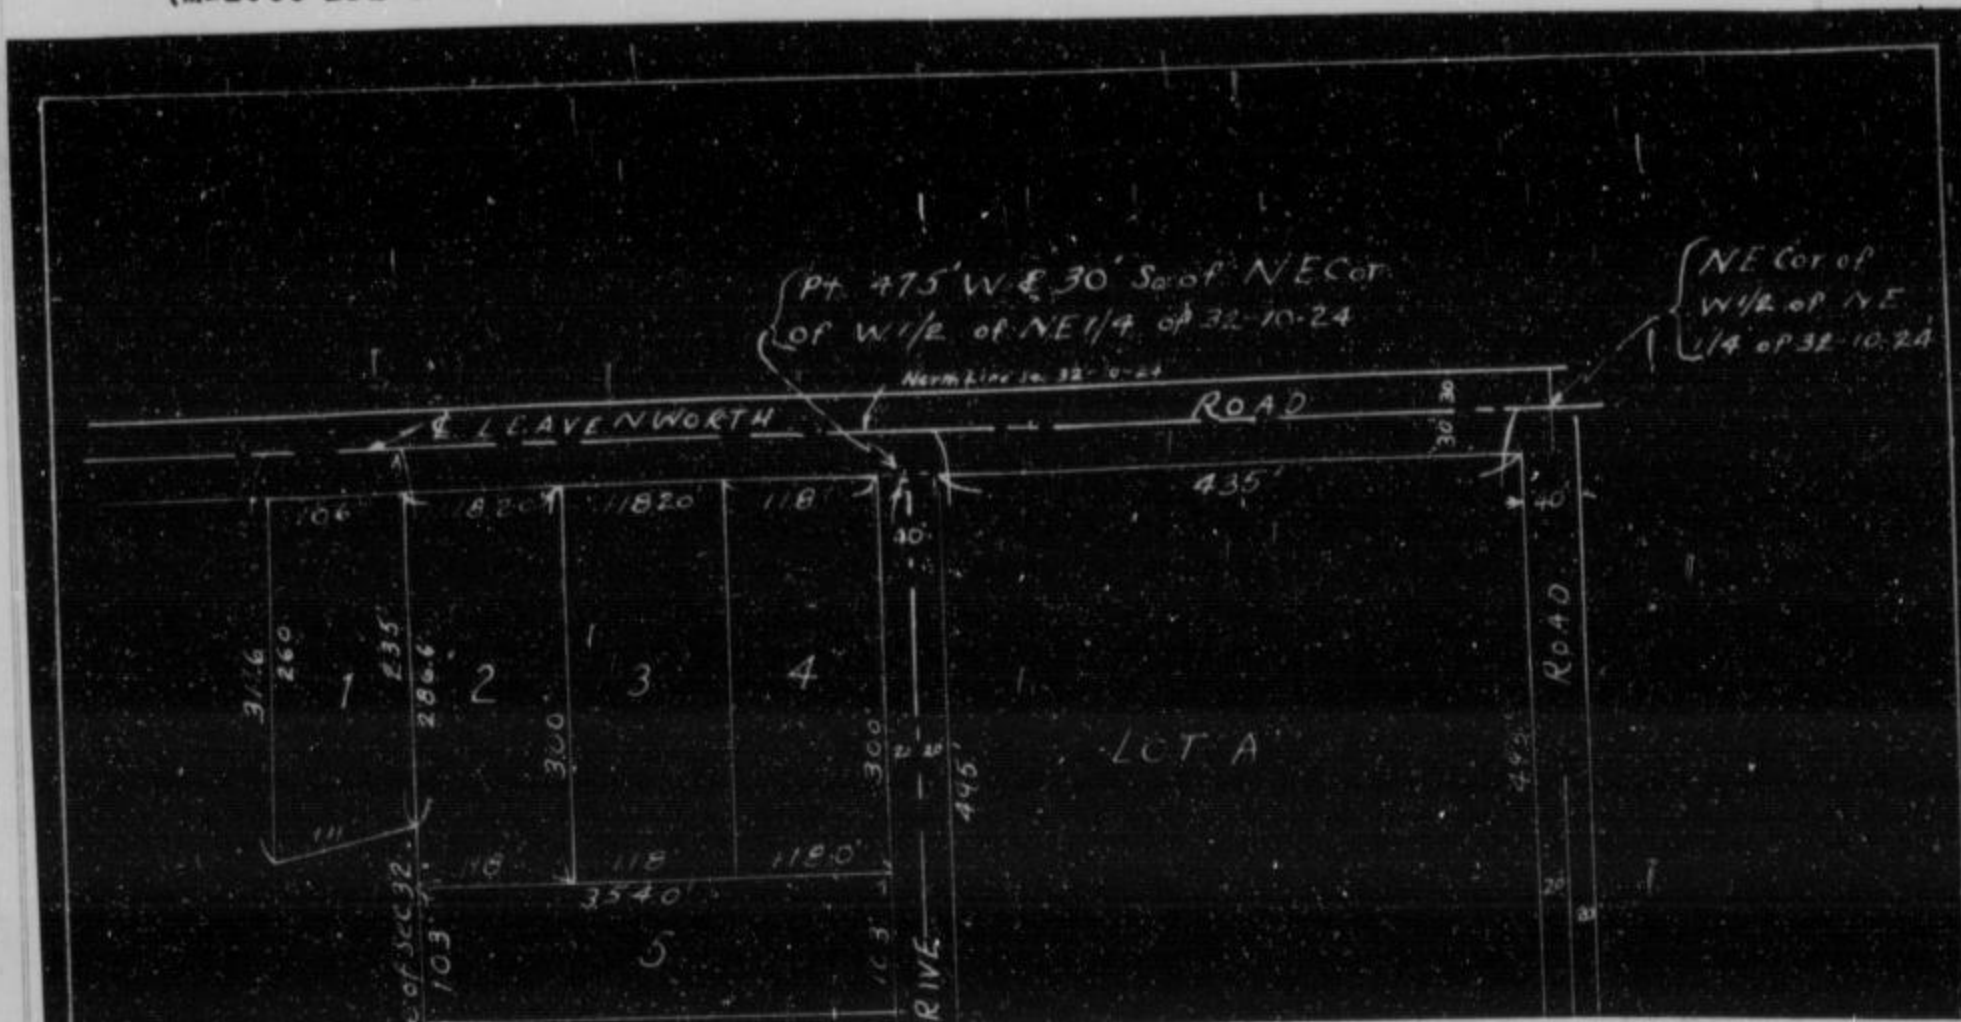 {Pt. 475' W & 30' So of NE Cor
of W 1/2 of NE 1/4 of 32-10-24
{NE Cor of
W 1/2 of NE
1/4 of 32-10-24
30
℄ LEAVENWORTH ROAD
30'
106' 118.20' 118.20 118' 435' 40'
40'
313.6 260 1 235' 286.6' 2 300' 3 4 300' 20' 445' LOT A 445' ROAD
111'
118' 118' 118.0'
354.0'
20'
20
of SEC 32
103 5 103
RIVE